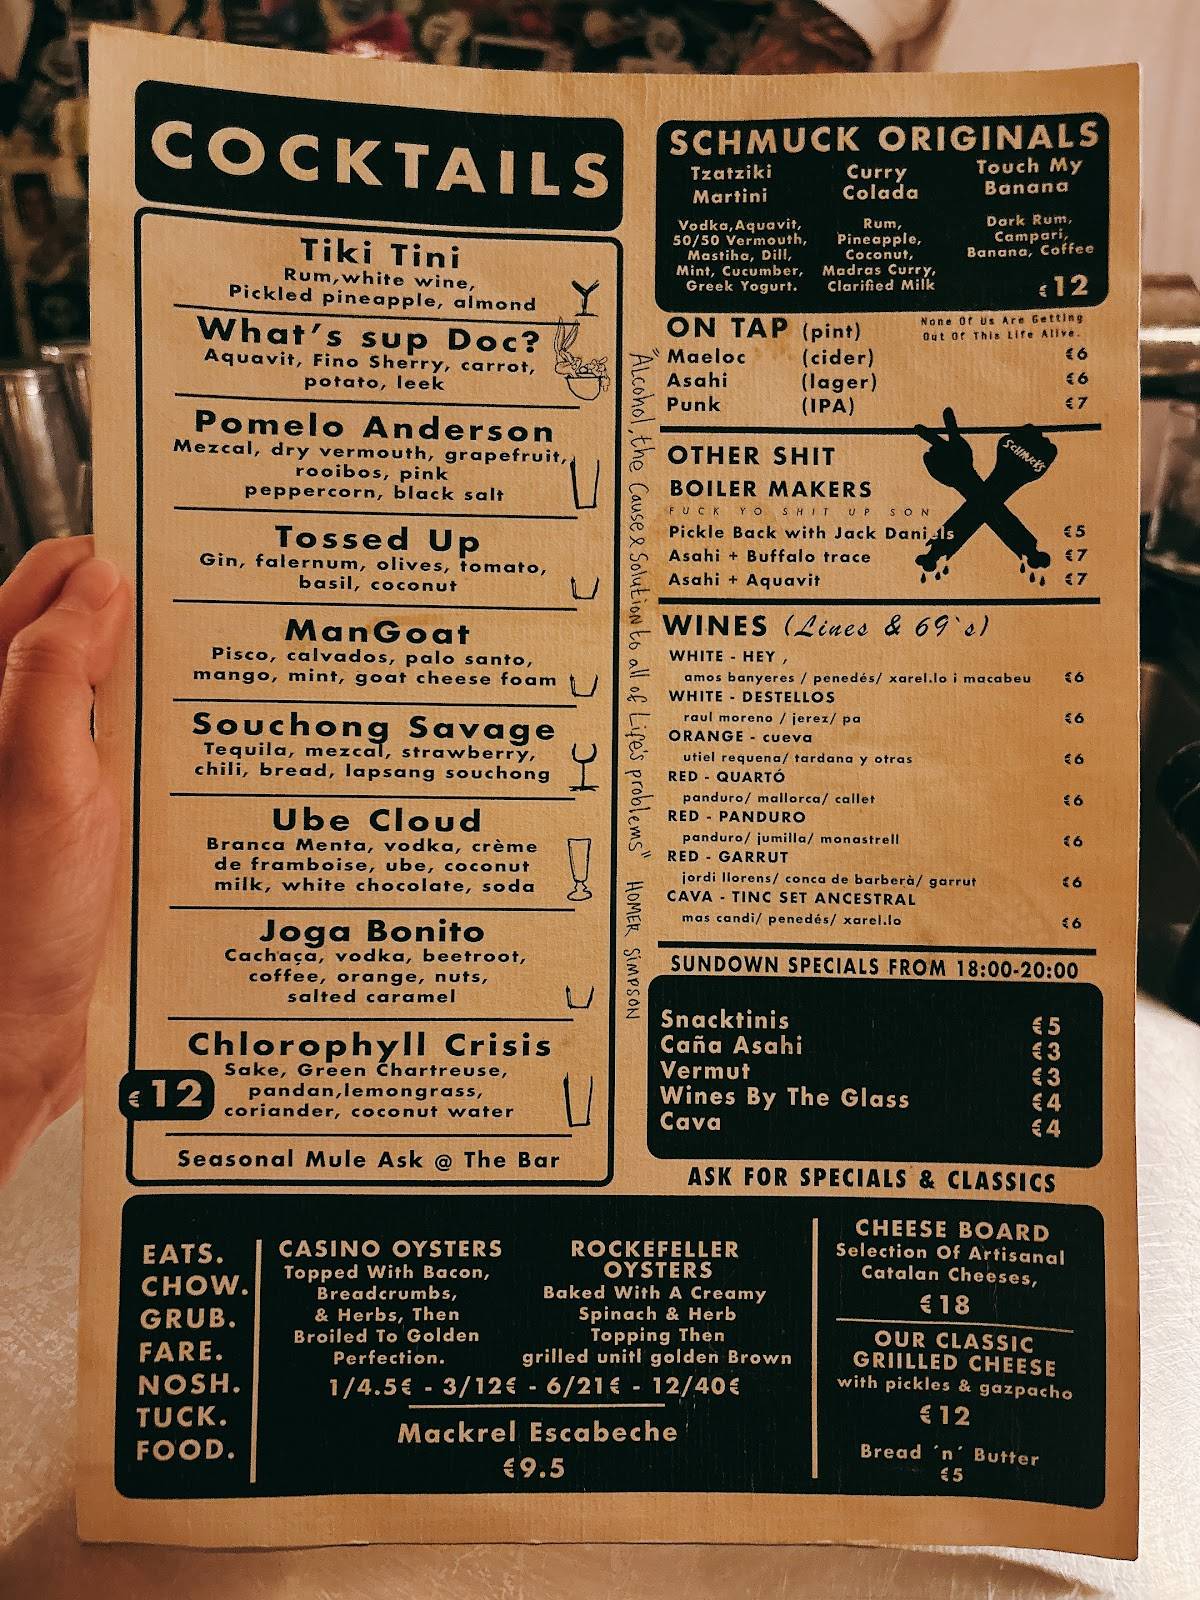 COCKTAILS
Tiki Tini
Rum,white wine,
Pickled pineapple, almond
What's sup Doc?
Aquavit, Fino Sherry, carrot,
potato, leek
Pomelo Anderson
Mezcal, dry vermouth, grapefruit,
rooibos, pink
peppercorn, black salt
Tossed Up
Gin, falernum, olives, tomato,
basil, coconut
ManGoat
Pisco, calvados, palo santo,
mango, mint, goat cheese foam
Souchong Savage
Tequila, mezcal, strawberry,
chili, bread, lapsang souchong
Ube Cloud
Branca Menta, vodka, crème
de framboise, ube, coconut
milk, white chocolate, soda
Joga Bonito
Cachaça, vodka, beetroot,
coffee, orange, nuts,
salted caramel
Chlorophyll Crisis
Sake, Green Chartreuse,
pandan,lemongrass,
coriander, coconut water
€12
Seasonal Mule Ask @ The Bar
"Alcohol, the Cause & Solution to all of Life's problems" HOMER SIMPSON
SCHMUCK ORIGINALS
Tzatziki
Martini
Vodka,Aquavit,
50/50 Vermouth,
Mastiha, Dill,
Mint, Cucumber,
Greek Yogurt.
Curry
Colada
Rum,
Pineapple,
Coconut,
Madras Curry,
Clarified Milk
Touch My
Banana
Dark Rum,
Campari,
Banana, Coffee
€12
ON TAP (pint)
None Of Us Are Getting
Out Of This Life Alive.
Maeloc (cider) €6
Asahi (lager) €6
Punk (IPA) €7
OTHER SHIT
BOILER MAKERS
FUCK YO SHIT UP SON
SCHMUCKS
Pickle Back with Jack Daniels €5
Asahi + Buffalo trace €7
Asahi + Aquavit €7
WINES (Lines & 69`s)
WHITE - HEY ,
amos banyeres / penedés/ xarel.lo i macabeu €6
WHITE - DESTELLOS
raul moreno / jerez/ pa €6
ORANGE - cueva
utiel requena/ tardana y otras €6
RED - QUARTÓ
panduro/ mallorca/ callet €6
RED - PANDURO
panduro/ jumilla/ monastrell €6
RED - GARRUT
jordi llorens/ conca de barberà/ garrut €6
CAVA - TINC SET ANCESTRAL
mas candi/ penedés/ xarel.lo €6
SUNDOWN SPECIALS FROM 18:00-20:00
Snacktinis €5
Caña Asahi €3
Vermut €3
Wines By The Glass €4
Cava €4
ASK FOR SPECIALS & CLASSICS
EATS.
CHOW.
GRUB.
FARE.
NOSH.
TUCK.
FOOD.
CASINO OYSTERS
Topped With Bacon,
Breadcrumbs,
& Herbs, Then
Broiled To Golden
Perfection.
ROCKEFELLER
OYSTERS
Baked With A Creamy
Spinach & Herb
Topping Then
grilled unitl golden Brown
1/4.5€ - 3/12€ - 6/21€ - 12/40€
Mackrel Escabeche
€9.5
CHEESE BOARD
Selection Of Artisanal
Catalan Cheeses,
€18
OUR CLASSIC
GRIILLED CHEESE
with pickles & gazpacho
€12
Bread ´n´ Butter
€5